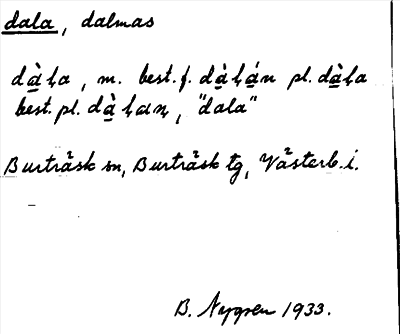 dala, dalmas
dàḷa, m. best. f. dàḷán pl. dàḷa
best. pl. dàḷaṇ, "dala"
Burträsk sn, Burträsk tg, Västerb. i.
B. Nygren 1933.